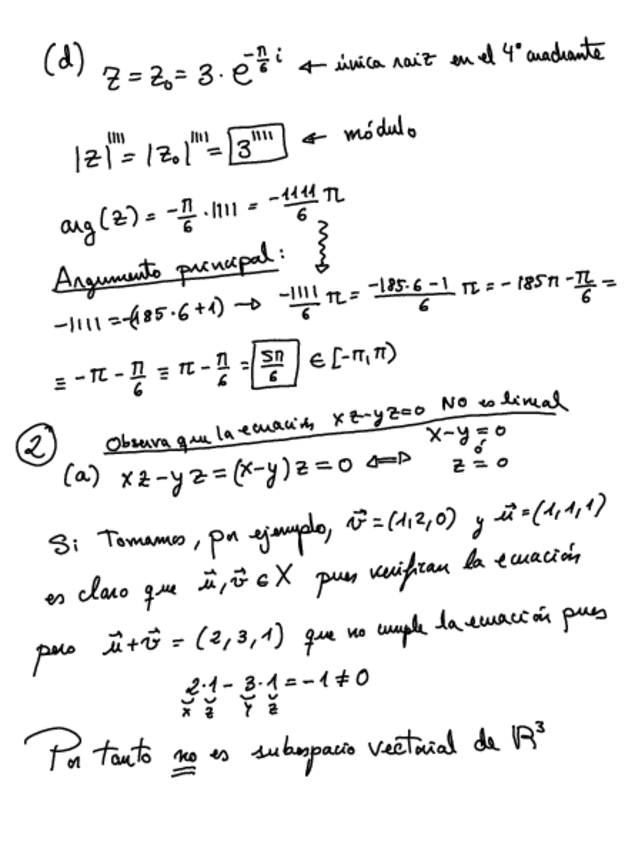 (d) z = z₀ = 3 · e^(-π/6 i) ← única raiz en el 4º cuadrante
|z|^1111 = |z₀|^1111 = 3^1111 ← módulo
arg(z) = -π/6 · 1111 = -1111/6 π
Argumento principal:
-1111 = -(185·6+1) → -1111/6 π = -185·6-1/6 π = -185π - π/6 =
≡ -π - π/6 ≡ π - π/6 = 5π/6 ∈ [-π, π)
② Observa que la ecuación xz-yz=0 NO es lineal
(a) xz-yz = (x-y)z = 0 ⇔ x-y=0 ó z=0
Si Tomamos, por ejemplo, v⃗ = (1,2,0) y u⃗ = (1,1,1)
es claro que u⃗, v⃗ ∈ X pues verifican la ecuación
pero u⃗+v⃗ = (2,3,1) que no cumple la ecuación pues
2·1 - 3·1 = -1 ≠ 0
x z y z
Por tanto no es subespacio vectorial de ℝ³